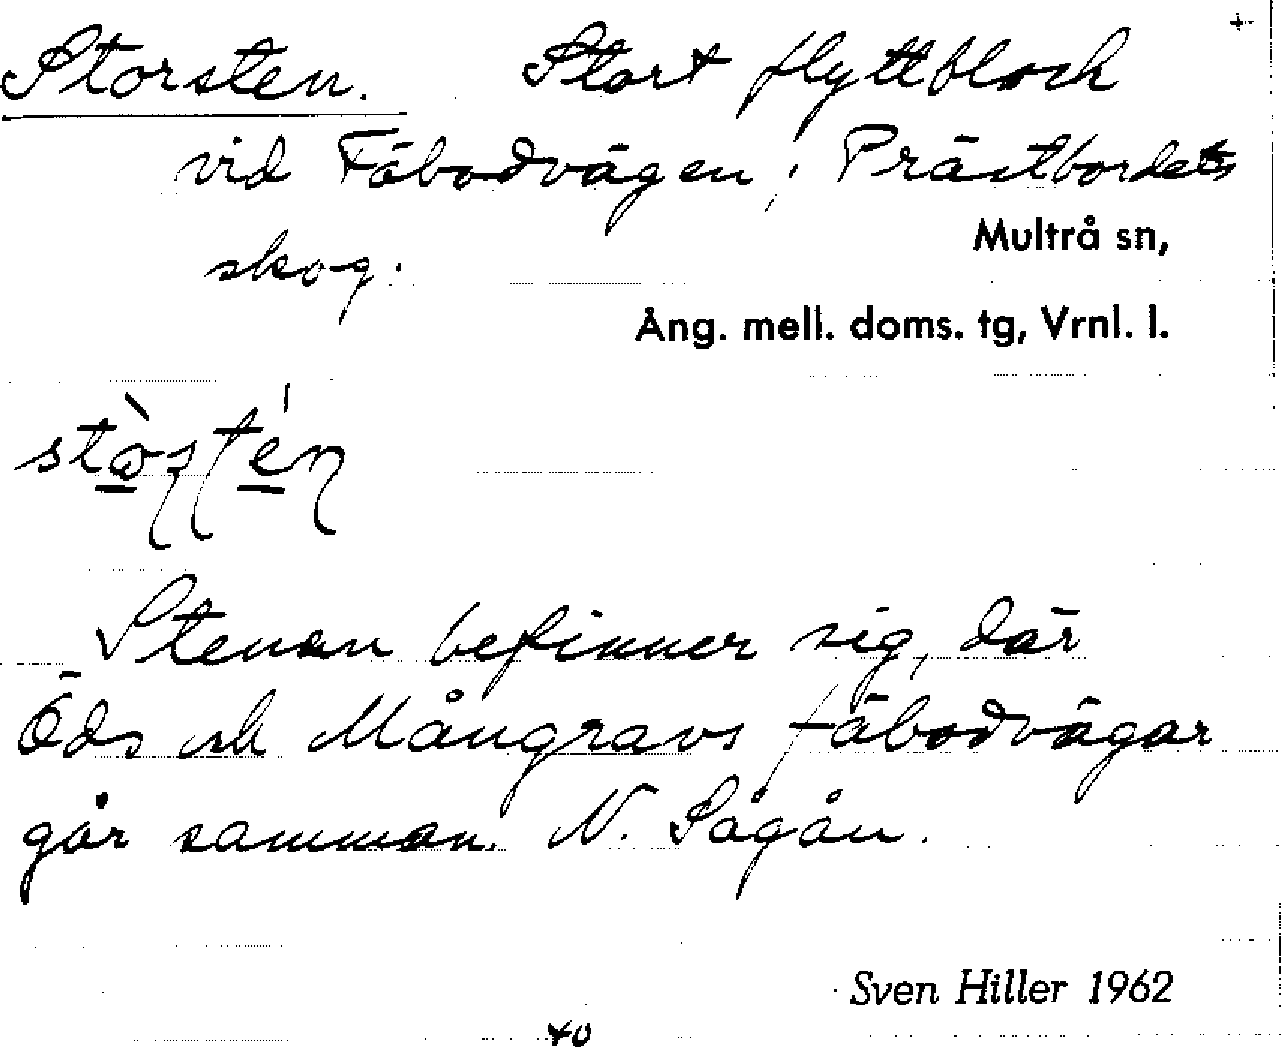 Storsten. Stort flyttblock
vid Fäbodvägen i Prästbordets
skog.
Multrå sn,
Ång. mell. doms. tg, Vrnl. l.
Stenen befinner sig, där
Öds och Mångravs fäbodvägar
går samman. N. Sågån.
Sven Hiller 1962
40